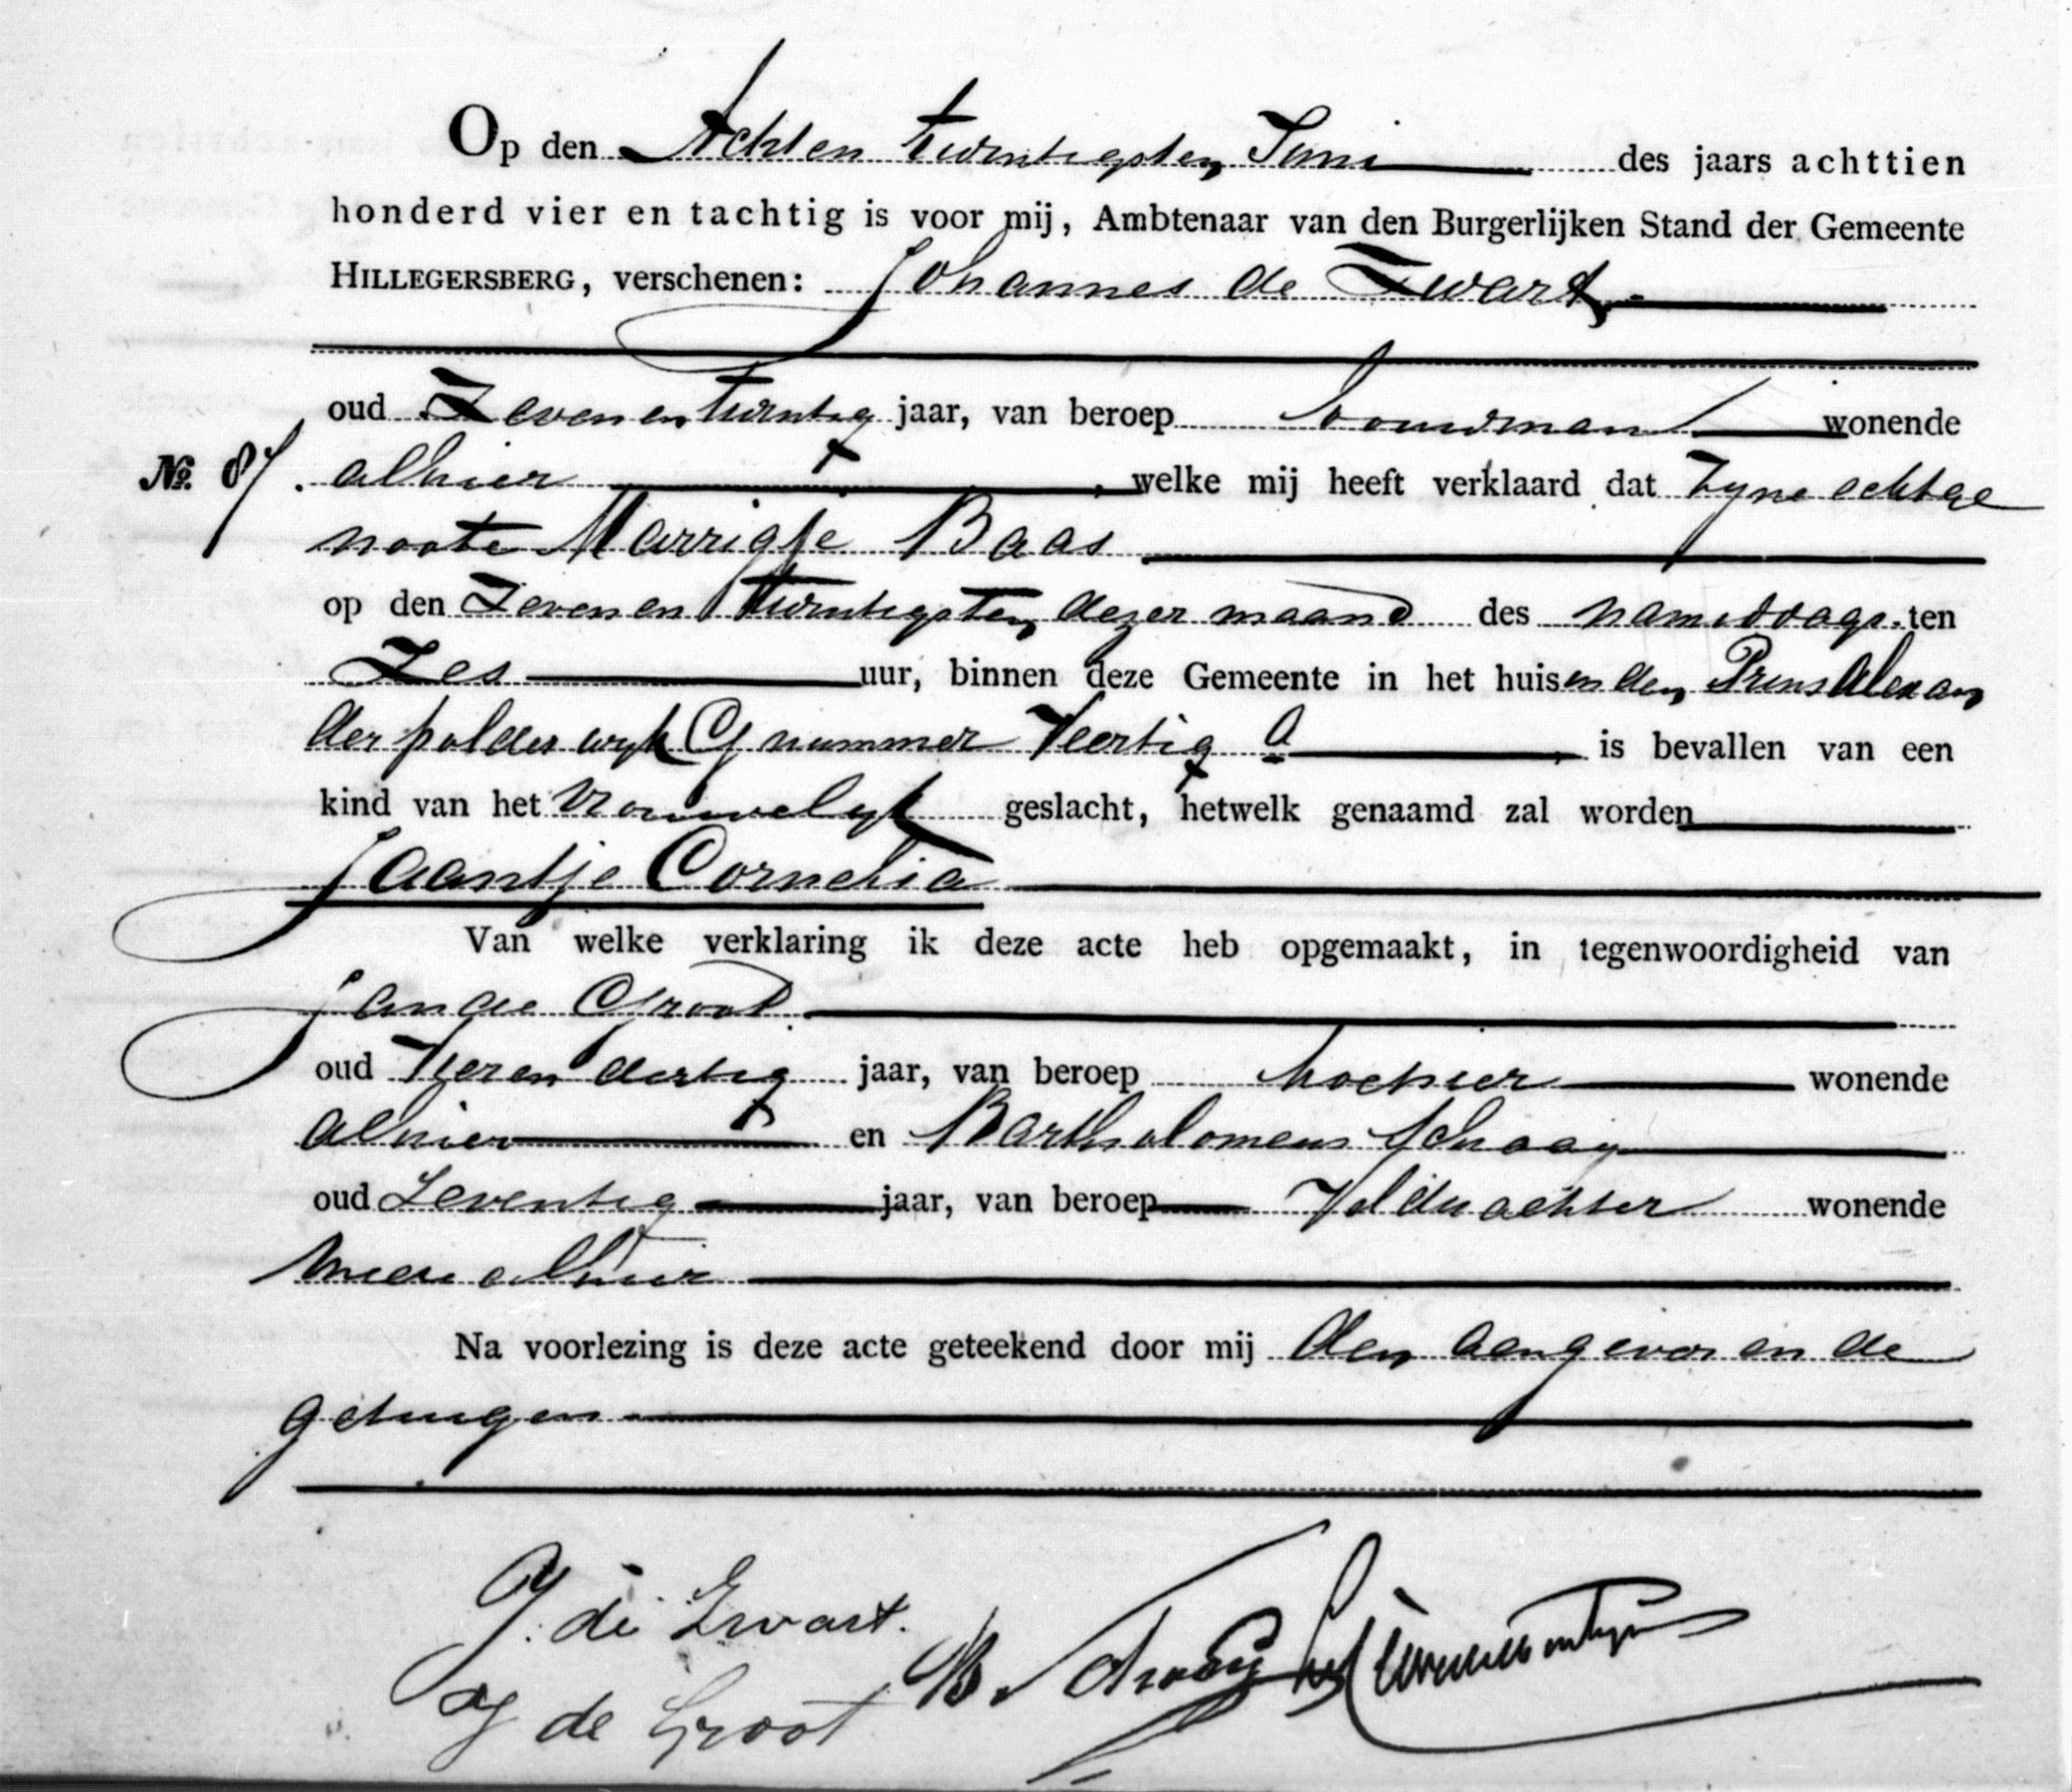 Op den Achten twintigsten Juni des jaars achttien
honderd vier en tachtig is voor mij, Ambtenaar van den Burgerlijken Stand der Gemeente
HILLEGERSBERG, verschenen: Johannes de Zwart
oud Zevenen twintig jaar, van beroep bouwman wonende
No. 87. alhier, welke mij heeft verklaard dat Zyne echtge
noote Marrigje Baas
op den Zevenen twintigsten dezer maand des namiddags ten
Zes uur, binnen deze Gemeente in het huis in den Prins Alexan
der polder wyk G nummer Veertig a, is bevallen van een
kind van het Vrouwelyk geslacht, hetwelk genaamd zal worden
Jaantje Cornelia
Van welke verklaring ik deze acte heb opgemaakt, in tegenwoordigheid van
Jan de Groot
oud Vieren dertig jaar, van beroep wonende
alhier en Bartholomeus Schaay
oud Zeventig jaar, van beroep Veldwachter wonende
mede alhier
Na voorlezing is deze acte geteekend door mij den aangever en de
getuigen
J. de Zwart.
J de Groot B. Schaay